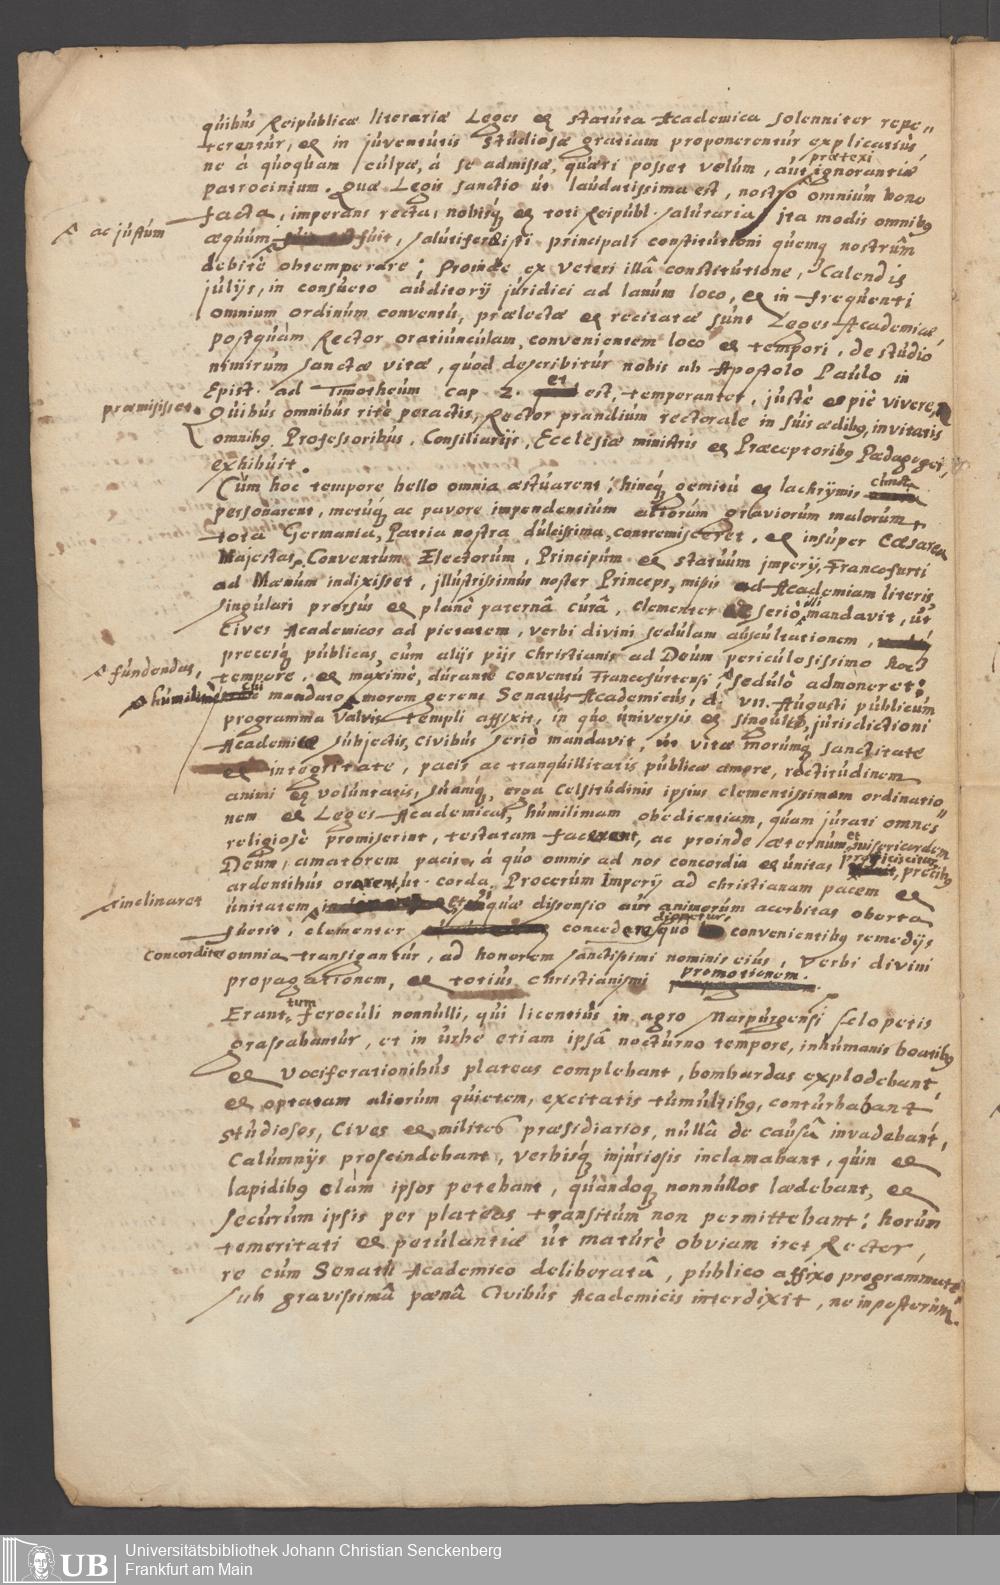 quibus Reipublicæ literariæ Leges et statuta Academica solenniter repe„
terentur, et in juventutis studiosæ gratiam proponerentur explicatius,
ne à quoquam culpæ, à se admissæ, quæri posset velum, aut prætexi ignorantiæ
patrocinium. Quæ Legis sanctio ut laudatissima est, nostro omnium bono
facta, imperans recta, nobisq́ et toti Reipubl. salutaria, ita modis omnibq
ac justum
æquum fuit, salutiferæ isti principali constitutioni quemq nostrûm
debitè obtemperare; Proinde ex veteri illâ constitutione, Calendis
Julijs, in consueto auditorij juridici ad lanum loco, et in frequenti
omnium ordinum conventu, prælectæ et recitatæ sunt Leges Academicæ,
postquàm Rector oratiunculam, convenientem loco et tempori, de studio
nimirum sanctæ vitæ, quod describitur nobis ab Apostolo Paulo in
Epist. ad Timotheum cap 2. et est, temperanter, justè et piè vivere,
præmisisset.
Quibus omnibus ritè peractis, Rector prandium rectorale in suis ædibq, invitatis
omnibq Professoribus, Consiliarijs, Ecclesiæ ministris et Præceptoribq Pædagogei,
exhibuit.
Cùm hoc tempore bello omnia æstuarent, hincq́ gemitu et lachrÿmis cuncta
personarent, metuq́ ac pavore impendentium aliorum graviorum malorum
tota Germania, Patria nostra dulcissima, contremisceret, et insuper Cæsarea
Majestas Conventum Electorum, Principum et statuum imperij, Francofurti
ad Mœnum indixisset, illustrissimus noster Princeps, missis ad Academiam literis,
singulari prorsus et planè paternâ curâ, clementer et seriò illi mandavit, ut
Cives Academicos ad pietatem, verbi divini sedulam auscultationem,
precesq́ publicas, cum alijs pijs christianis ad Deum periculosissimo hoc
fundendas,
tempore, et maximè, durante conventu Francofurtensi, sedulò admoneret;
humilimè cui mandato morem gerens Senatus Academicus, d. VII. Augusti publicum
programma valvis templi affixit, in quo universis et singulis, jurisdictioni
Academicæ subjectis, civibus seriò mandavit, ut vitæ morumq́ sanctitate
et integritate, pacis ac tranquillitatis publicæ amore, rectitudinem
animi et voluntatis, suamq́, erga Celsitudinis ipsius clementissimam ordinatio„
nem et Leges Academicas, humilimam obedientiam, quam jurati omnes
religiosè promiserint, testatam facerent, ac proinde æternum et misericordem
Deum, amatorem pacis, à quo omnis ad nos concordia et unitas proficiscitur, precibq
ardentibus orarent, ut corda Procerum Imperij ad christianam pacem et
inclinaret
unitatem et, si quæ dissensio aut animorum acerbitas oborta
fuerit, clementer concedere dignetur, quò convenientibq remedijs
Concorditer omnia transigantur, ad honorem sanctissimi nominis eius, verbi divini
propagationem, et totius christianismi promotionem.
Erant tum feroculi nonnulli, qui licentiùs in agro Marpurgensi sclopetis
grassabantur, et in urbe etiam ipsâ nocturno tempore, inhumanis boatibq
et vociferationibus plateas complebant, bombardas explodebant,
et optatam aliorum quietem, excitatis tumultibq, conturbabant
studiosos, Cives et milites præsidiarios, nullâ de causâ invadebant,
Calumnijs proscindebant, verbisq́ injuriosis inclamabant, quin et
lapidibq clàm ipsos petebant, quandoq nonnullos lædebant, et
securum ipsis per plateas transitum non permittebant; horum
temeritati et petulantiæ ut maturè obviam iret Rector,
re cum Senatu Academico deliberatâ, publico affixo programmate,
sub gravissimâ pœnâ Civibus Academicis interdixit, ne inposterum.
UB Universitätsbibliothek Johann Christian Senckenberg
Frankfurt am Main